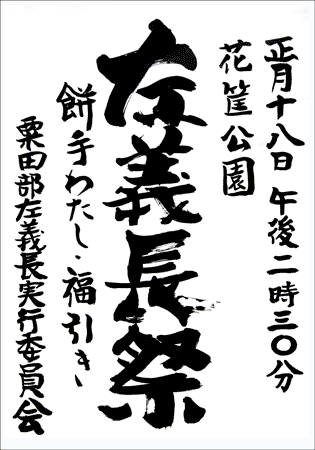 正月十八日 午後二時三〇分
花筐公園
左義長祭
餅手わたし・福引き
粟田部左義長実行委員会